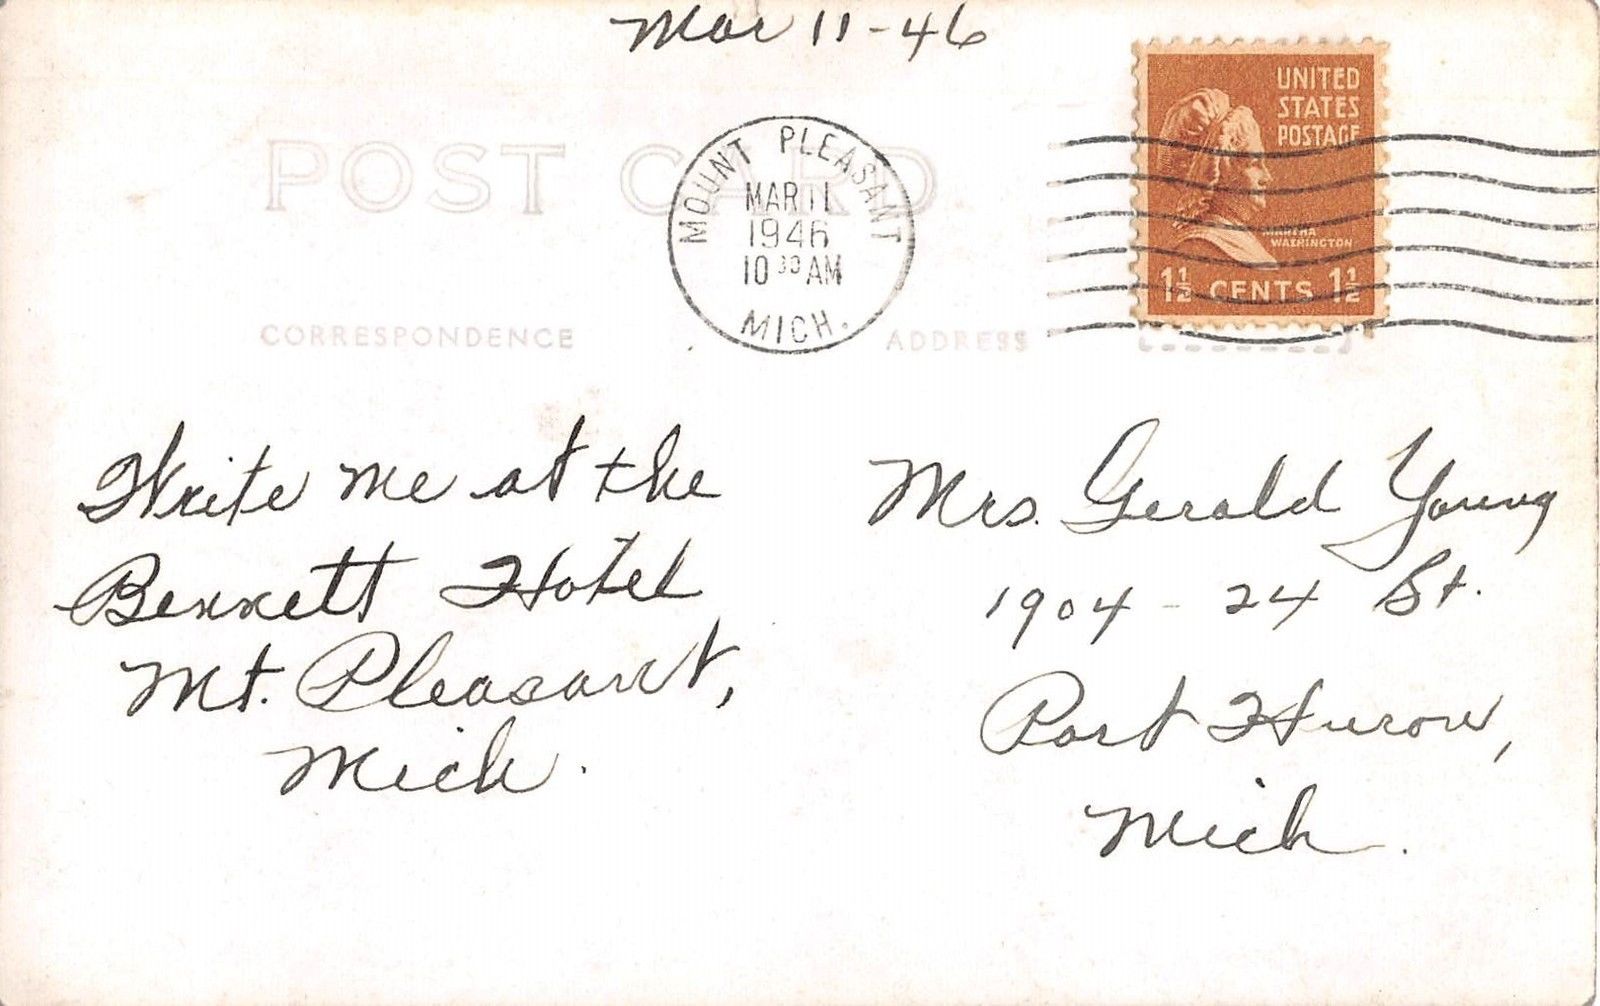 Mar 11-46
POST CARD
MOUNT PLEASANT
MAR 11
1946
10 30 AM
MICH.
UNITED
STATES
POSTAGE
MARTHA
WASHINGTON
1½ CENTS 1½
CORRESPONDENCE
ADDRESS
Write me at the
Bennett Hotel
Mt. Pleasant,
Mich.
Mrs. Gerald Young
1904 - 24 St.
Port Huron,
Mich.